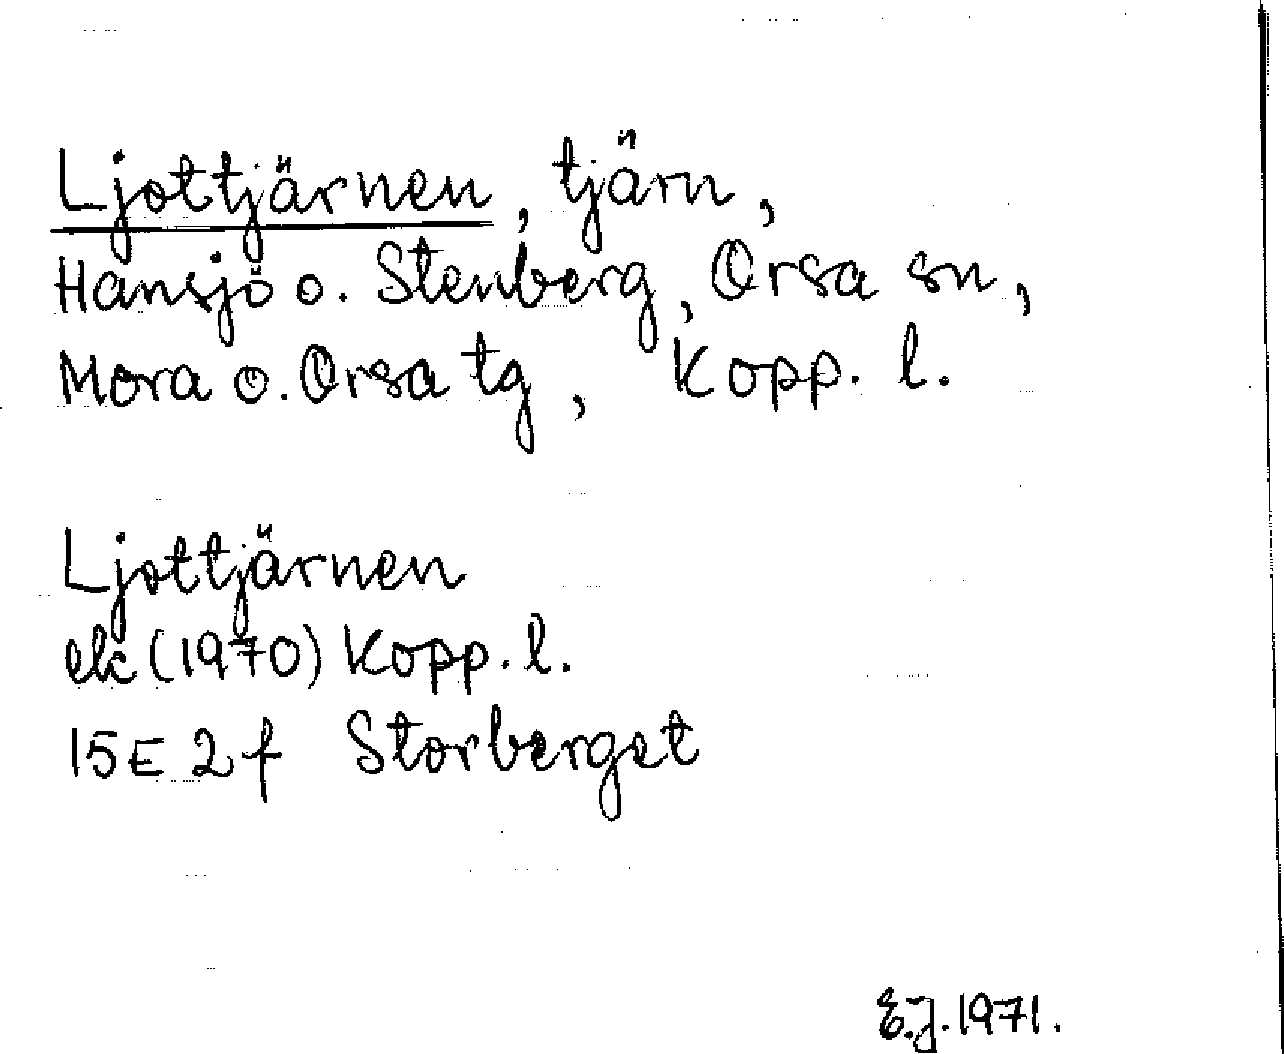 Ljottjärnen, tjärn,
Hansjö o. Stenberg, Orsa sn,
Mora o. Orsa tg, Kopp. l.
Ljottjärnen
ek (1970) Kopp. l.
15E 2f Storberget
E.J. 1971.